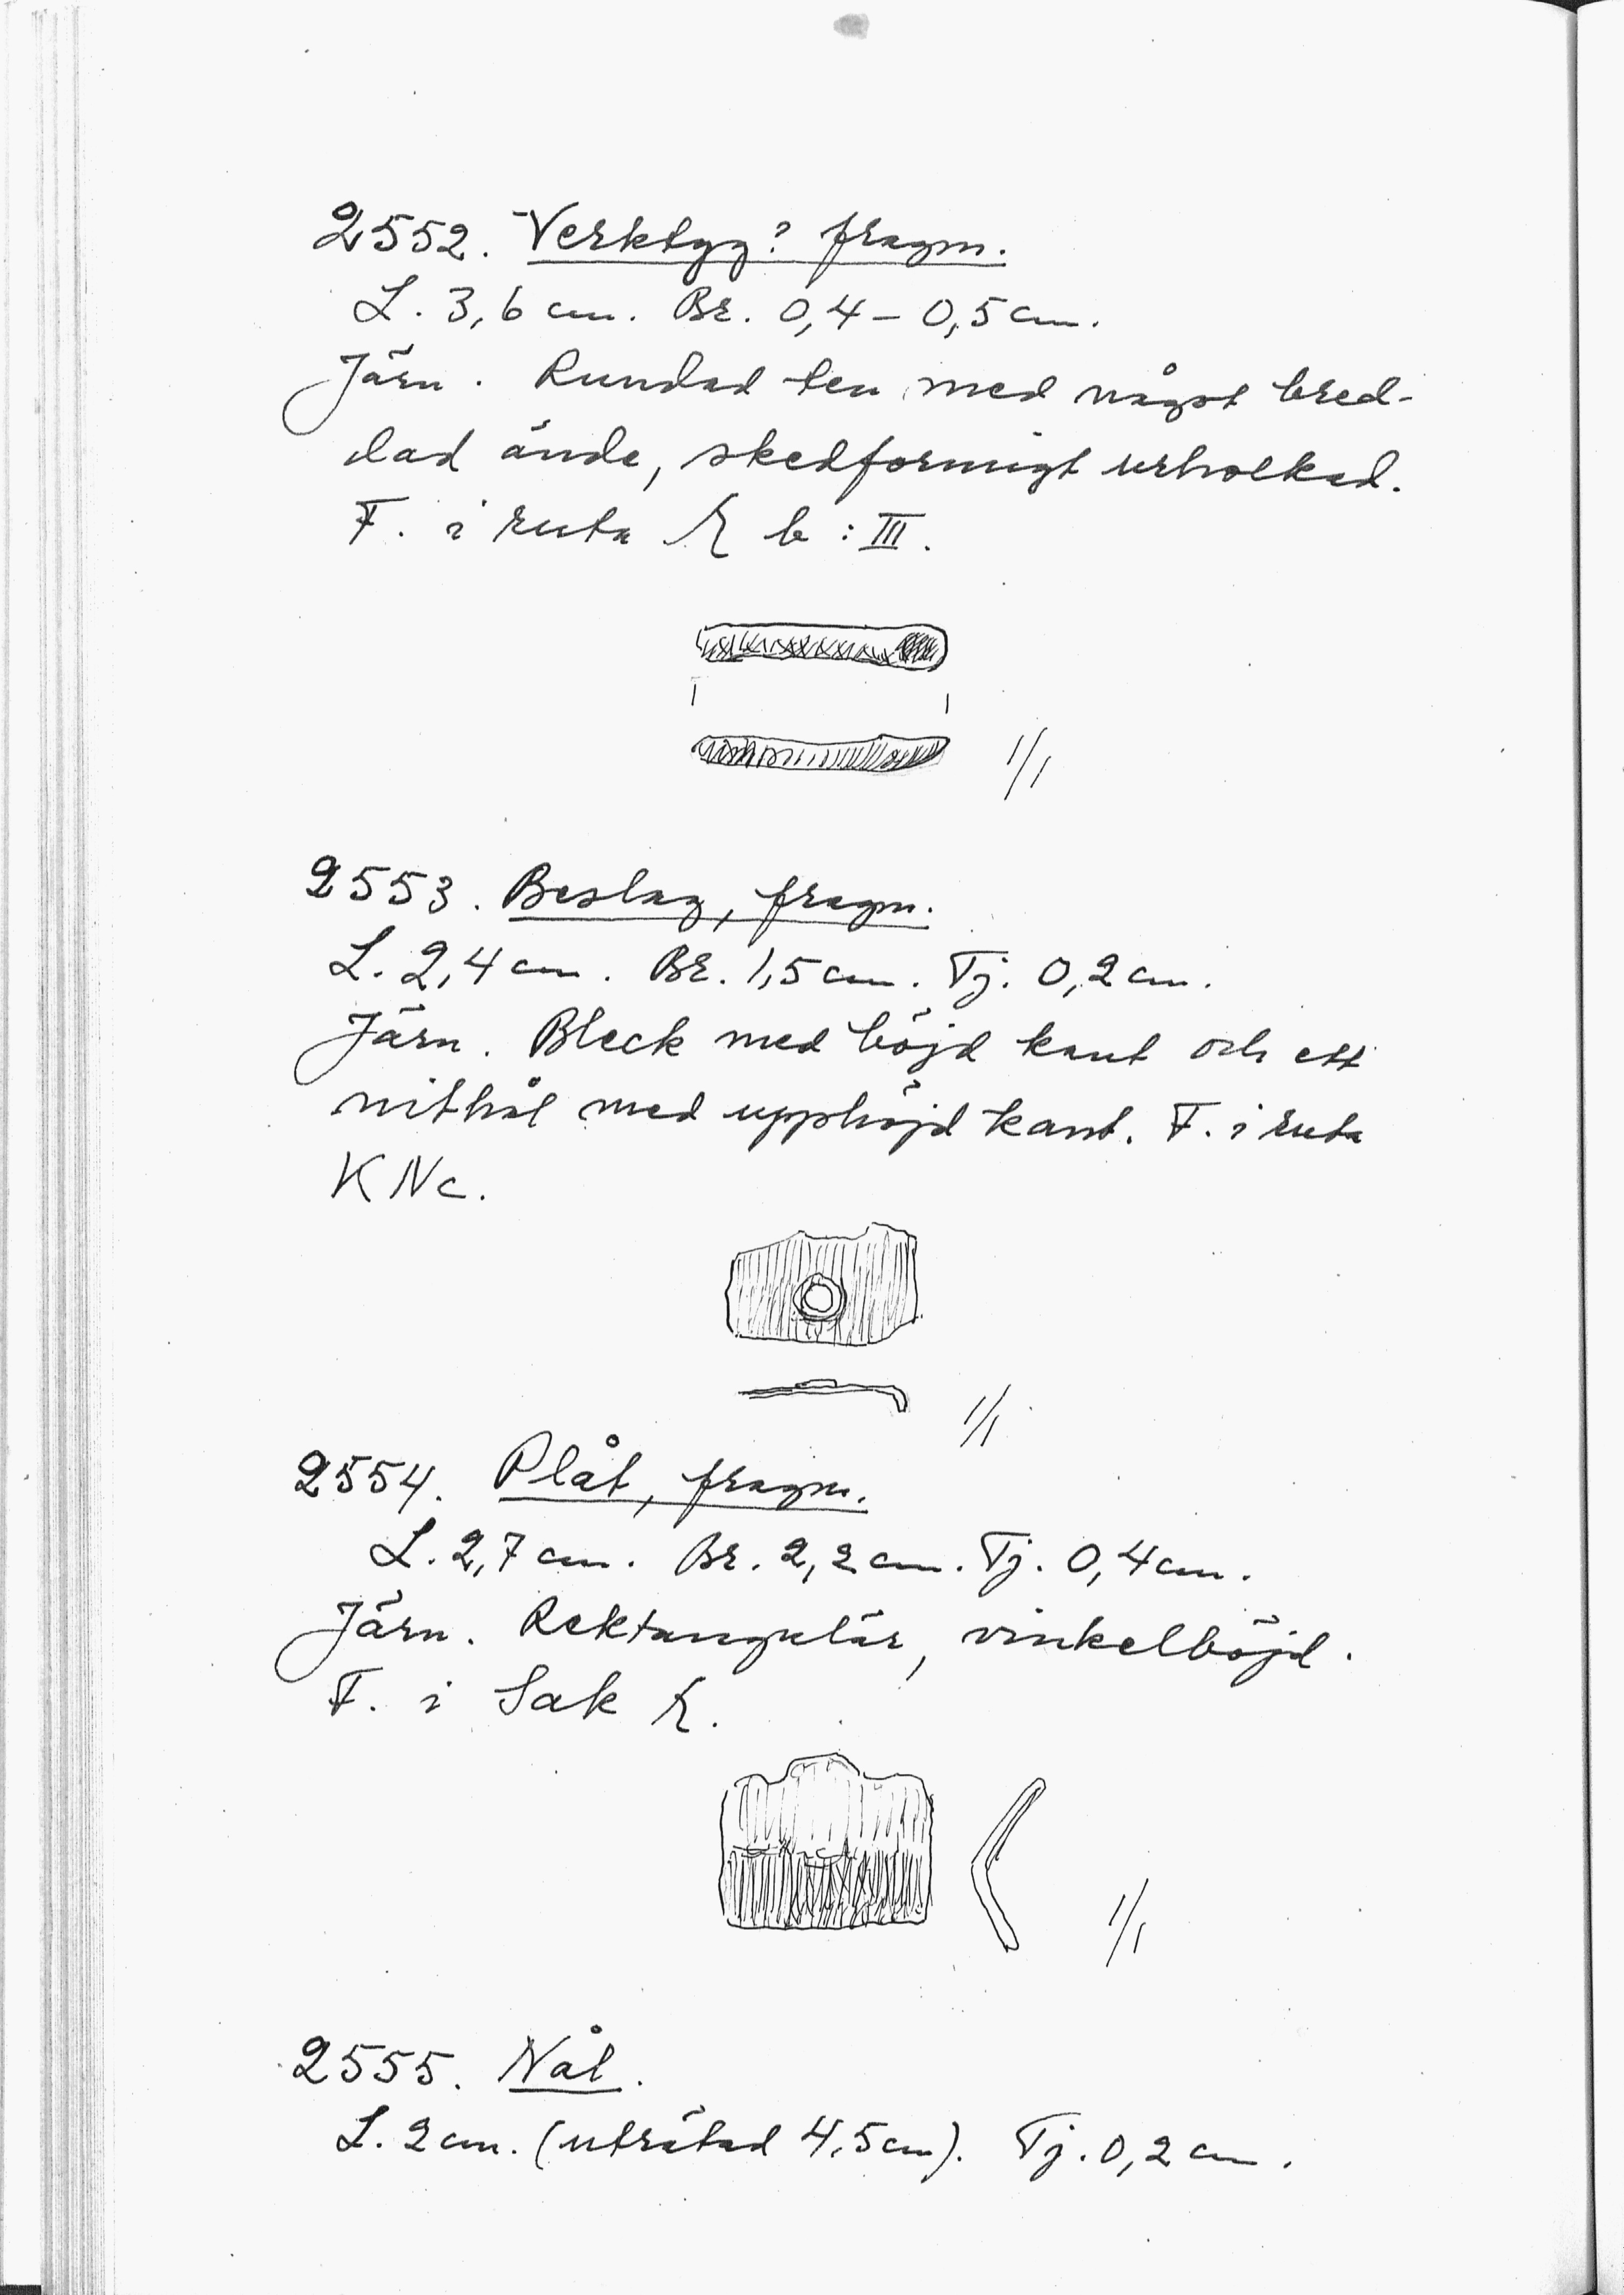 2552. Verktyg? fragm.
L. 3,6 cm. Br. 0,4 – 0,5 cm.
Järn. Rundad ten med något bred-
dad ände, skedformigt urholkad.
F. i ruta E b : III.
1/1
2553. Beslag, fragm.
L. 2,4 cm. Br. 1,5 cm. Tj. 0,2 cm.
Järn. Bleck med böjd kant och ett
nithål med upphöjd kant. F. i ruta
K N c.
1/1
2554. Plåt, fragm.
L. 2,7 cm. Br. 2,2 cm. Tj. 0,4 cm.
Järn. Rektangulär, vinkelböjd.
F. i Sak E.
1/1
2555. Nål.
L. 2 cm. (uträtad 4,5 cm). Tj. 0,2 cm.